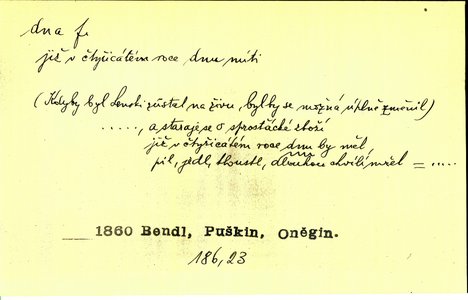 dna f.
již v čtyřicátém roce dnu míti
(Kdyby byl Lenski zůstal na živu, byl by se možná úplně změnil)
....., a staraje se o sprostácké zboží
již v čtyřicátém roce dnu by měl,
pil, jedl, tloustl, dlouhou chvíli měl = .....
1860 Bendl, Puškin, Oněgin.
186,23